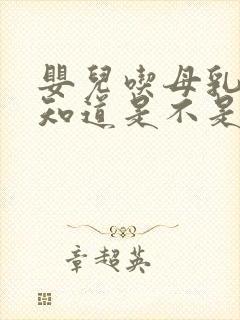 嬰兒喫母乳
知道是不是
章超英